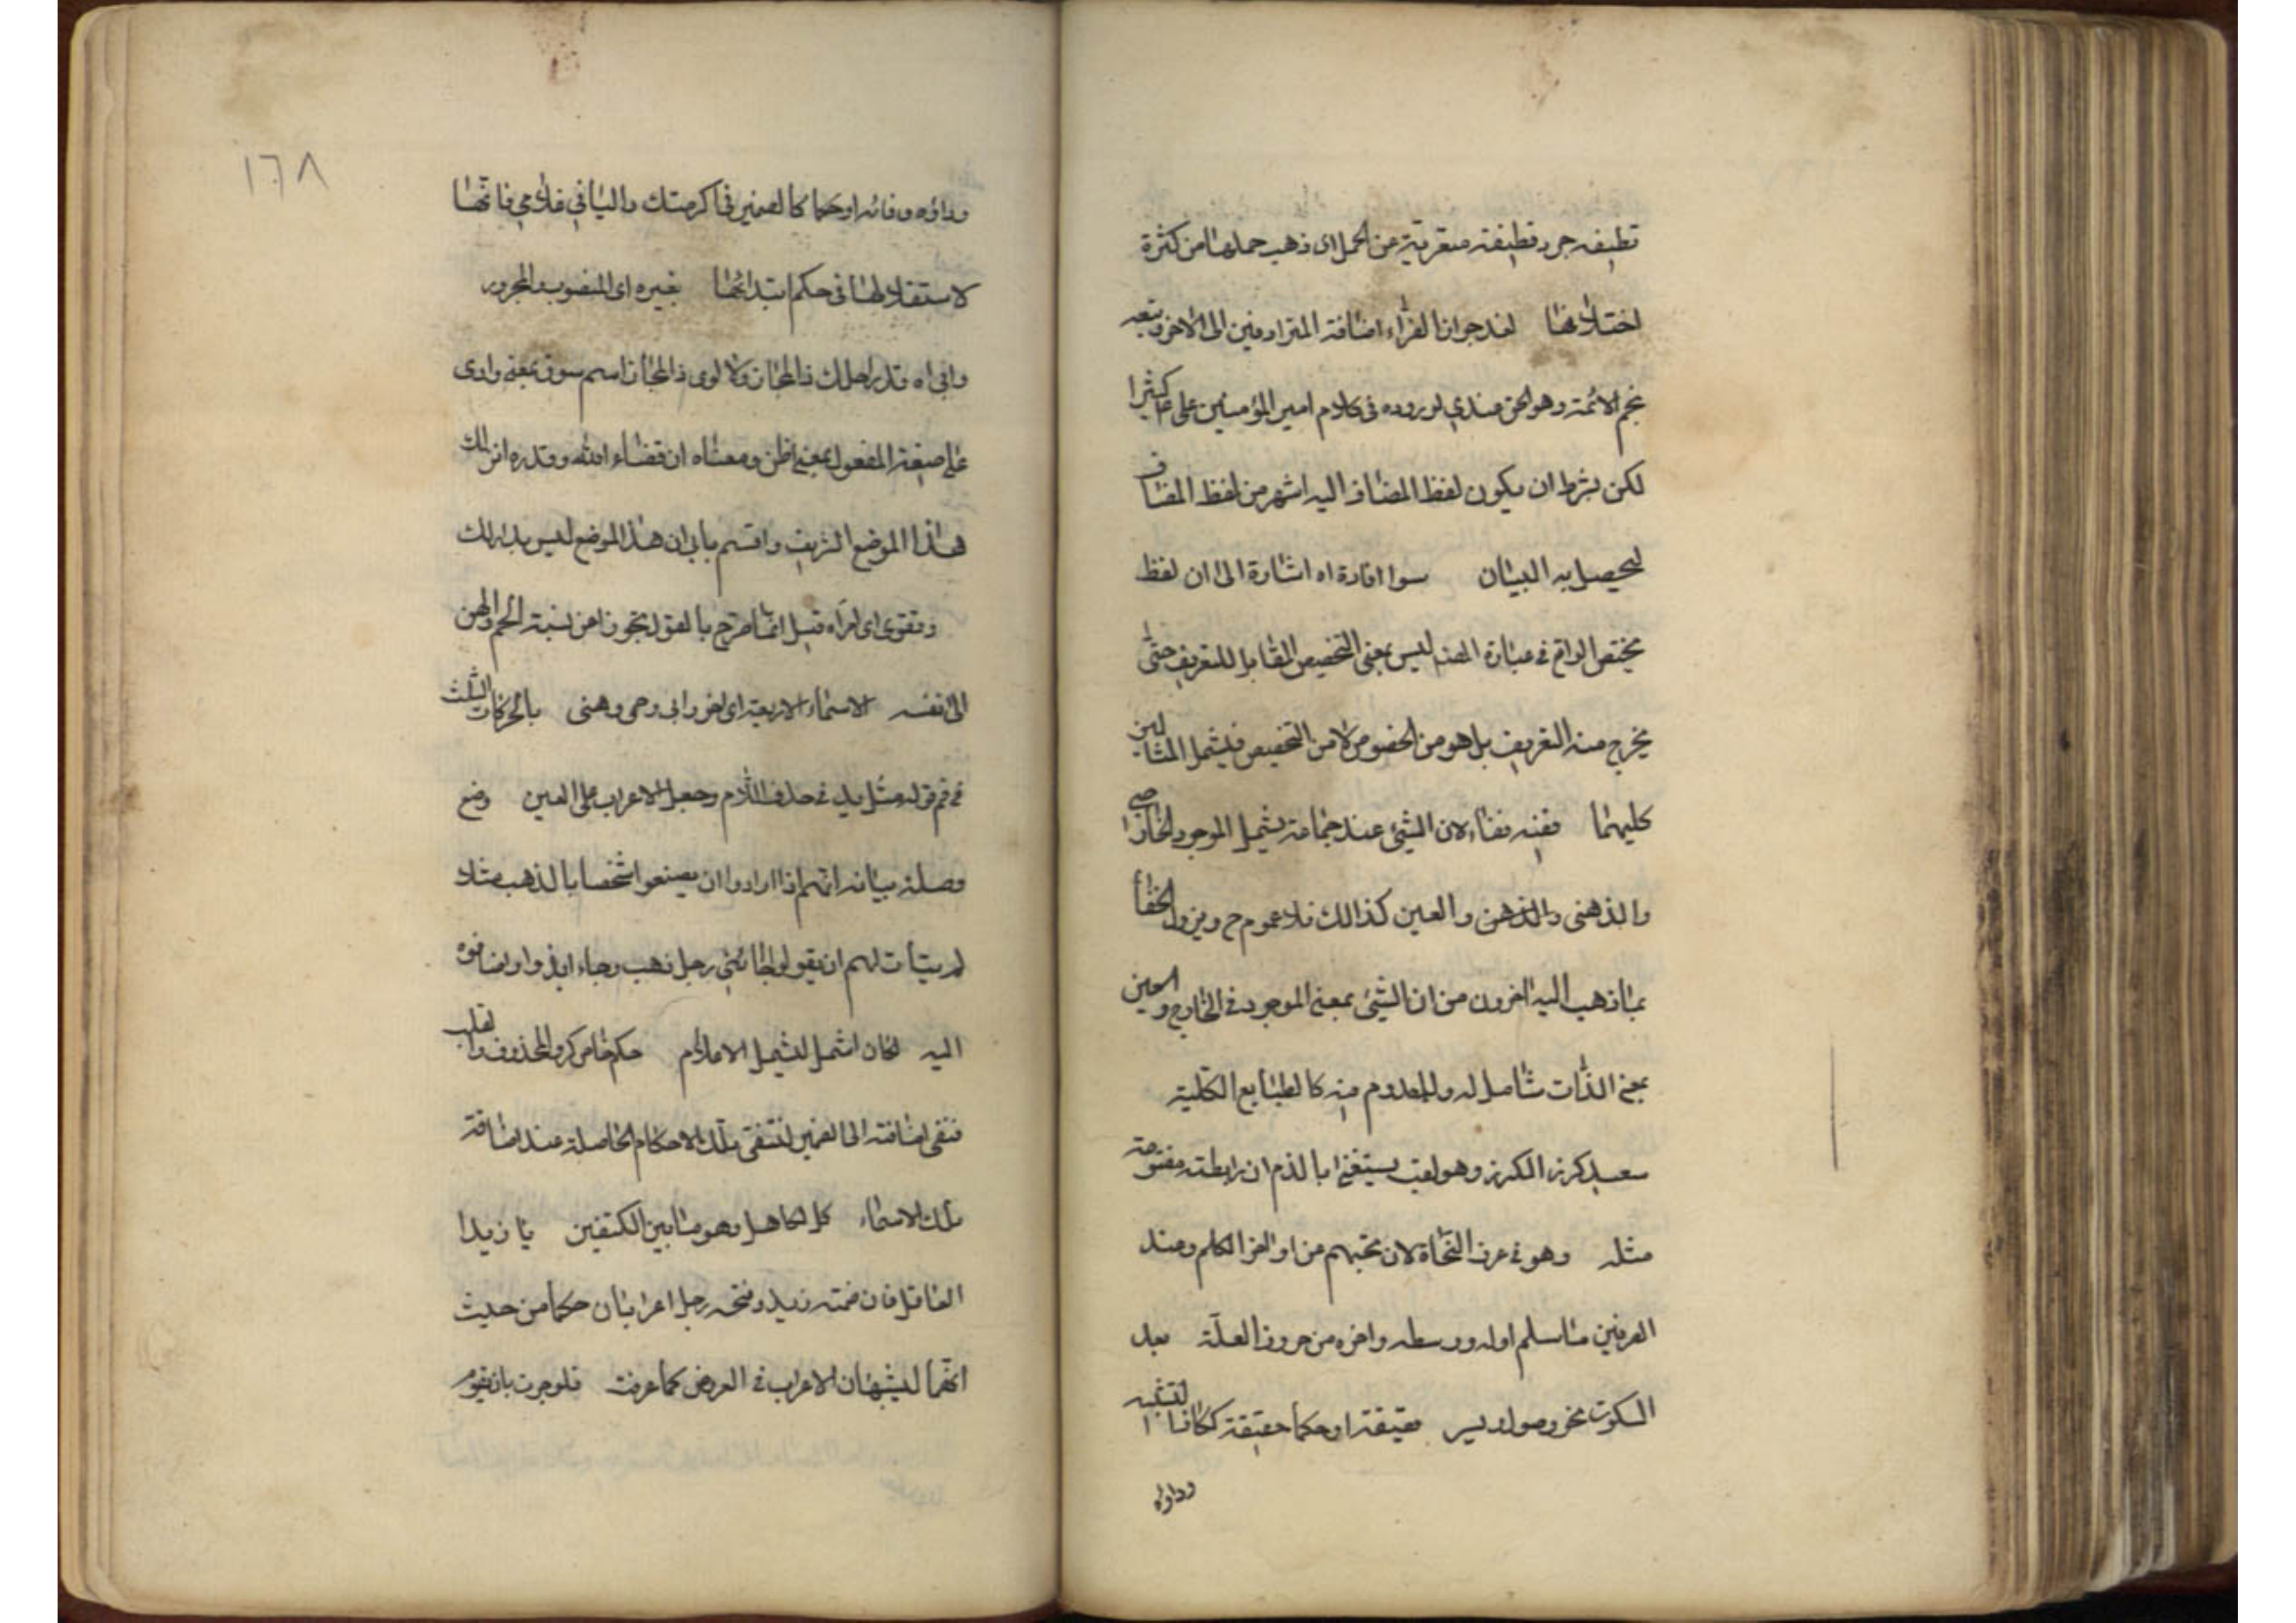 قطيفه جرد قطيفة متعرية من الخمل اى ذهب خملها من كثرة
اختلاقها لفذ جواز الفراء اضافة المترادفين الى الاخر وتبعه
نجم الائمة وهو الحق عندي لوروده فى كلام امير المؤمنين على ع كثيرا
لكن بشرط ان يكون لفظ المضاف اليه اشهر من لفظ المضاف
ليحصل به البيان سوا افادة اه اشارة الى ان لفظ
يختص الواقع فى عبارة المصنف ليس بمعنى التخصيص المقابل للتعريف حتى
يخرج منه التعريف بل هو من الخصوص لا من التخصيص فيشمل المثالين
كليهما ففيه خفاء لان الشئ عند جماعة يشمل الموجود الخارجى
والذهنى والذهن والعين كذالك فلا عموم ح ويزول الخفأ
بما ذهب اليه اخرون من ان الشئ بمعنى الموجود فى الخارج والعين
بمعنى الذات شامل له وللمعدوم فيه كالطبايع الكلية
سعيد كرز الكرز وهو لقب
مثله وهو فى عرف النحاة لان بحثهم من اواخر الكلم وعند
الصرفين ما سلم اوله ووسطه واخره من حروف العلة بعد
السكوت نحو وصول وسير حقيقة او حكما حقيقة ككافا لتشبيه
وداواه
١٦٨
وداؤه وفائه او حكما كالضمير فى اكرمتك والياء فى غلامي فانها
لاستقلالها فى حكم ابتدائها بغيره اى المنصوب والمجرور
وابى اه قدر احلك ذا المجاز ولا اروى ذا المجاز اسم سوق بمعنى وارى
على صيغة المفعول بمعنى اظن ومعناه ان قضاء الله وقدره انزلك
هذا الموضع الشريف واقسم بابي ان هذا الموضع ليس بدارلك
وتقول اى امراه قيل انما صرح بالقول تحرزا عن نسبة الحم والهن
الى نفسه الاسماء الاربعة اى اخى وابى وحمى وهنى بالحركات الثلث
فى فم قوله مثل يد فى حذف اللام وجعل الاعراب على العين وضع
وصلة بيانه انهم اذا ارادوا ان يصنعوا شخصا بالذهب مثلا
لم يتيأت لهم ان يقولوا جائنى رجل ذهب وجاء ابذو اولضافوه
اليه لكان اشمل لشمل الاعلام حكم خاص كرد المحذوف والقلب
فنفى اضافته الى الضمير لتنتفى تلك الاحكام الحاصلة عند اضافة
تلك الاسماء كل كاهل وهو ما بين الكتفين يا زيدا
العاقل فان ضمة زيد وفتحه رجل اعرابان حكما من حيث
انهما يشبهان الاعراب فى العروض كما عرفت فلو جوزت بان يقوم